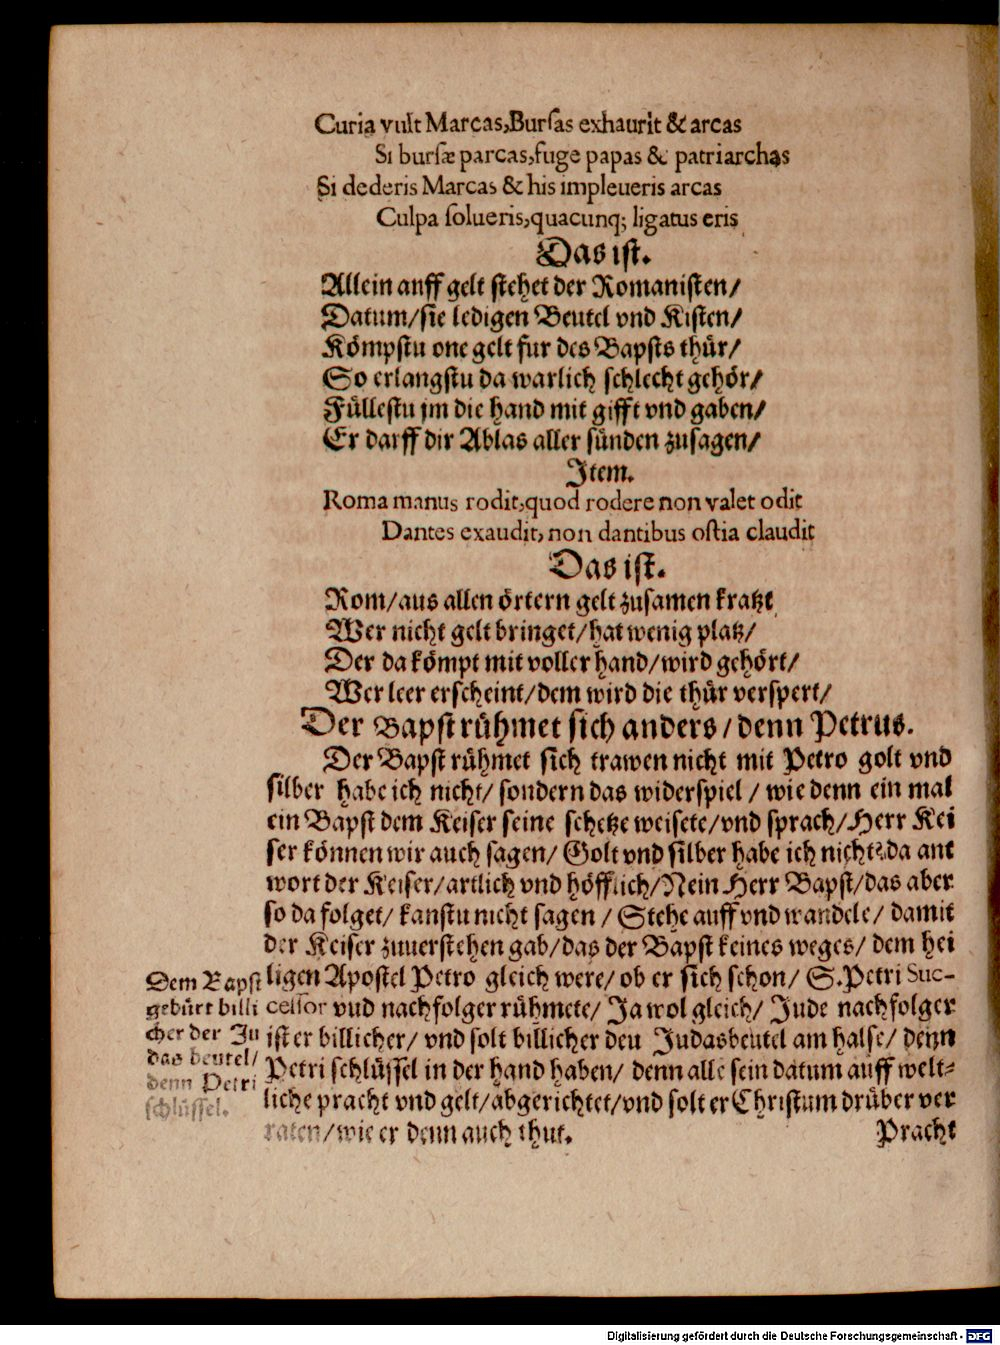 Curia vult Marcas, Bursas exhaurit & arcas
Si bursæ parcas, fuge papas & patriarchas
Si dederis Marcas & his impleueris arcas
Culpa solueris, quacunq; ligatus eris
Das ist.
Allein auff gelt stehet der Romanisten/
Datum/ sie ledigen Beutel vnd Kisten/
Kömpstu one gelt fur des Bapsts thür/
So erlangstu da warlich schlecht gehör/
Füllestu jm die hand mit gifft vnd gaben/
Er darff dir Ablas aller sünden zusagen/
Item.
Roma manus rodit, quod rodere non valet odit
Dantes exaudit, non dantibus ostia claudit
Das ist.
Rom/ aus allen örtern gelt zusamen kratzt
Wer nicht gelt bringet/ hat wenig platz/
Der da kömpt mit voller hand/ wird gehört/
Wer leer erscheint/ dem wird die thür verspert/
Der Bapst rühmet sich anders/ denn Petrus.
Der Bapst rühmet sich trawen nicht mit Petro golt vnd
silber habe ich nicht/ sondern das widerspiel/ wie denn ein mal
ein Bapst dem Keiser seine schetze weisete/ vnd sprach/ Herr Kei
ser können wir auch sagen/ Golt vnd silber habe ich nicht? da ant
wort der Keiser/ artlich vnd höfflich/ Nein Herr Bapst/ das aber
so da folget/ kanstu nicht sagen/ Stehe auff vnd wandele/ damit
der Keiser zuuerstehen gab/ das der Bapst keines weges/ dem hei
ligen Apostel Petro gleich were/ ob er sich schon/ S. Petri Suc-
cessor vud nachfolger rühmete/ Ja wol gleich/ Jude nachfolger
ist er billicher/ vnd solt billicher den Judasbeutel am halse/ denn
Petri schlüssel in der hand haben/ denn alle sein datum auff welt-
liche pracht vnd gelt/ abgerichtet/ vnd solt er Christum drüber ver
raten/ wie er denn auch thut.
Pracht
Dem Bapst
gebürt billi
cher der Ju
das beutel/
denn Petri
schlüssel.
Digitalisierung gefördert durch die Deutsche Forschungsgemeinschaft - DFG